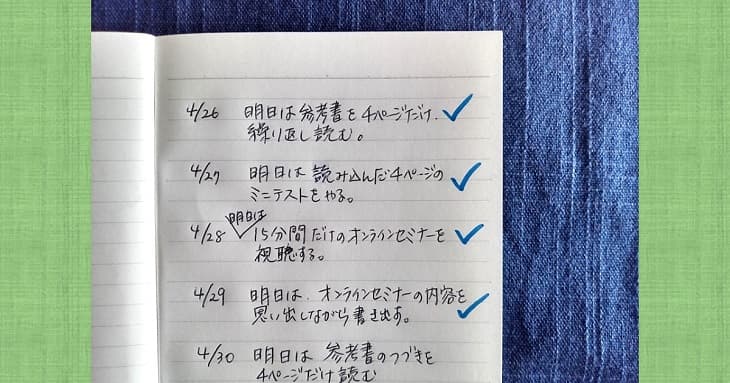 4/26 明日は参考書を4ページだけ、
繰り返し読む。
4/27 明日は読み込んだ4ページの
ミニテストをやる。
明日は
4/28 15分間だけのオンラインセミナーを
視聴する。
4/29 明日は、オンラインセミナーの内容を
思い出しながら書き出す。
4/30 明日は参考書のつづきを
4ページだけ読む